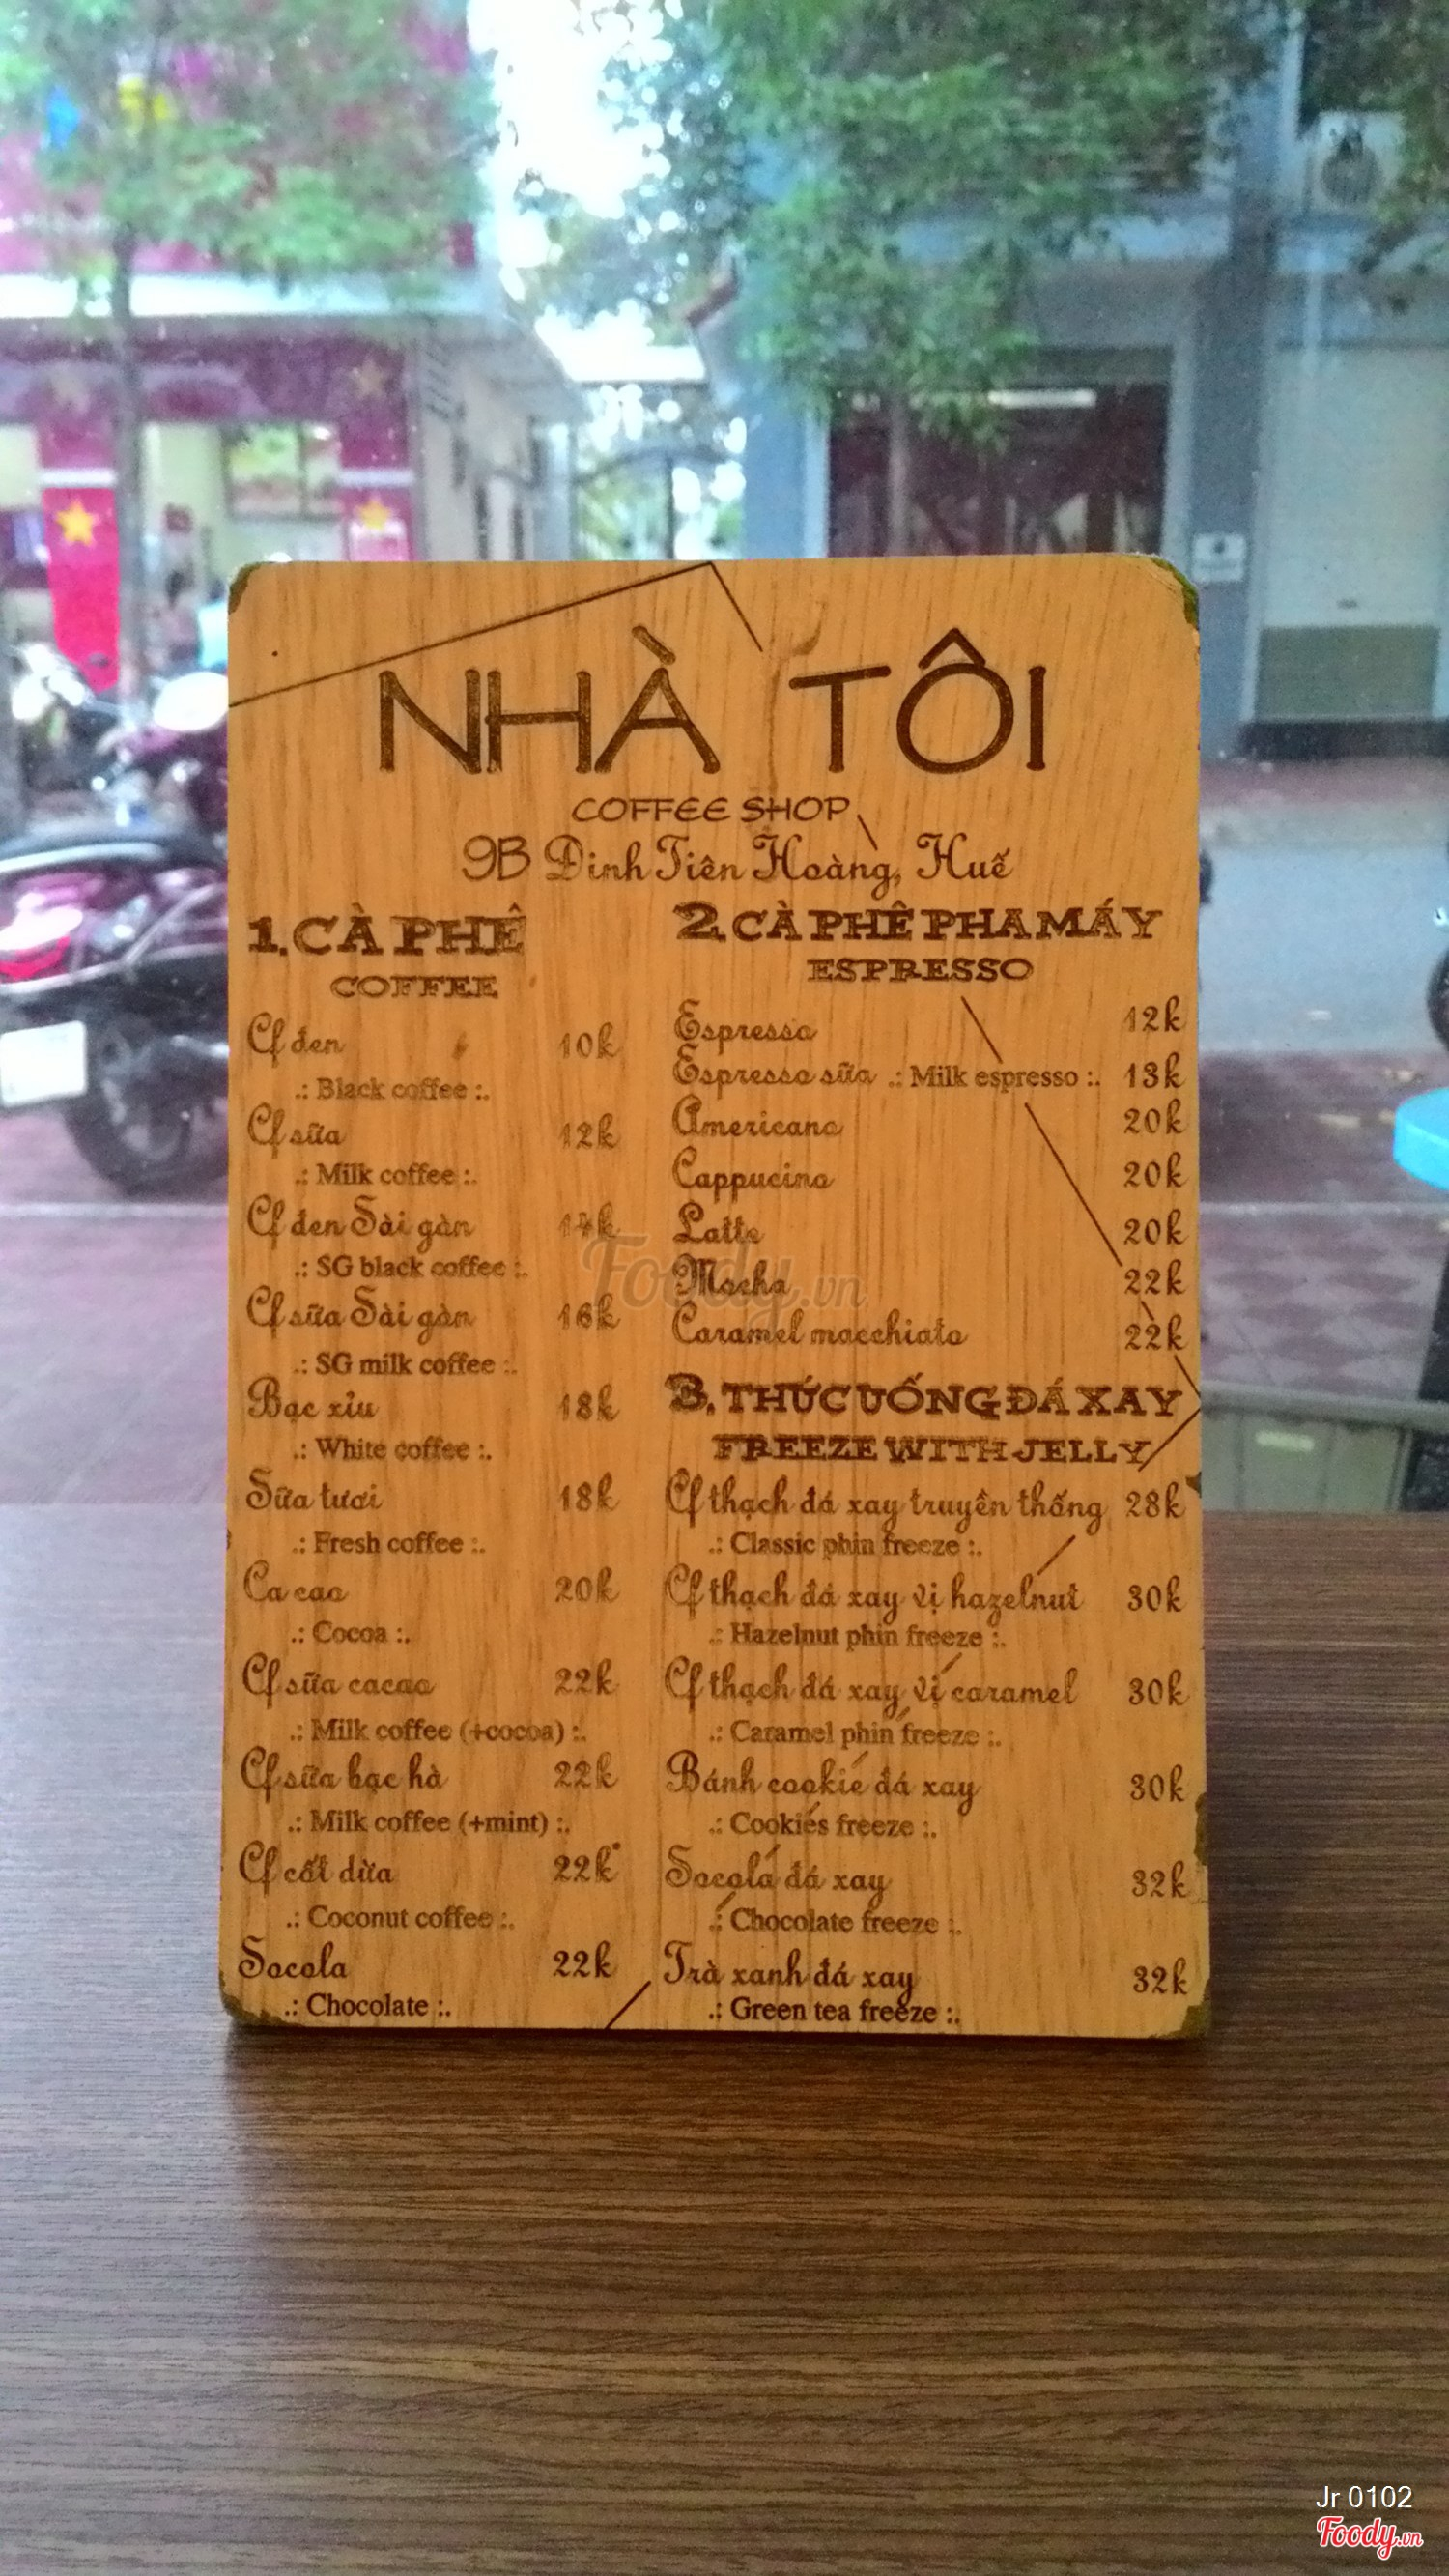 NHÀ TÔI
COFFEE SHOP
9B Đinh Tiên Hoàng, Huế
1. CÀ PHÊ
COFFEE
Cf đen 10k
.: Black coffee :.
Cf sữa 12k
.: Milk coffee :.
Cf đen Sài gòn 14k
.: SG black coffee :.
Cf sữa Sài gòn 16k
.: SG milk coffee :.
Bạc xỉu 18k
.: White coffee :.
Sữa tươi 18k
.: Fresh coffee :.
Ca cao 20k
.: Cocoa :.
Cf sữa cacao 22k
.: Milk coffee (+cocoa) :.
Cf sữa bạc hà 22k
.: Milk coffee (+mint) :.
Cf cốt dừa 22k
.: Coconut coffee :.
Socola 22k
.: Chocolate :.
2. CÀ PHÊ PHA MÁY
ESPRESSO
Espresso 12k
Espresso sữa .: Milk espresso :. 13k
Americano 20k
Cappucino 20k
Latte 20k
Mocha 22k
Caramel macchiato 22k
3. THỨC UỐNG ĐÁ XAY
FREEZE WITH JELLY
Cf thạch đá xay truyền thống 28k
.: Classic phin freeze :.
Cf thạch đá xay vị hazelnut 30k
.: Hazelnut phin freeze :.
Cf thạch đá xay vị caramel 30k
.: Caramel phin freeze :.
Bánh cookie đá xay 30k
.: Cookies freeze :.
Socola đá xay 32k
.: Chocolate freeze :.
Trà xanh đá xay 32k
.: Green tea freeze :.
Foody.vn
Jr 0102
Foody.vn